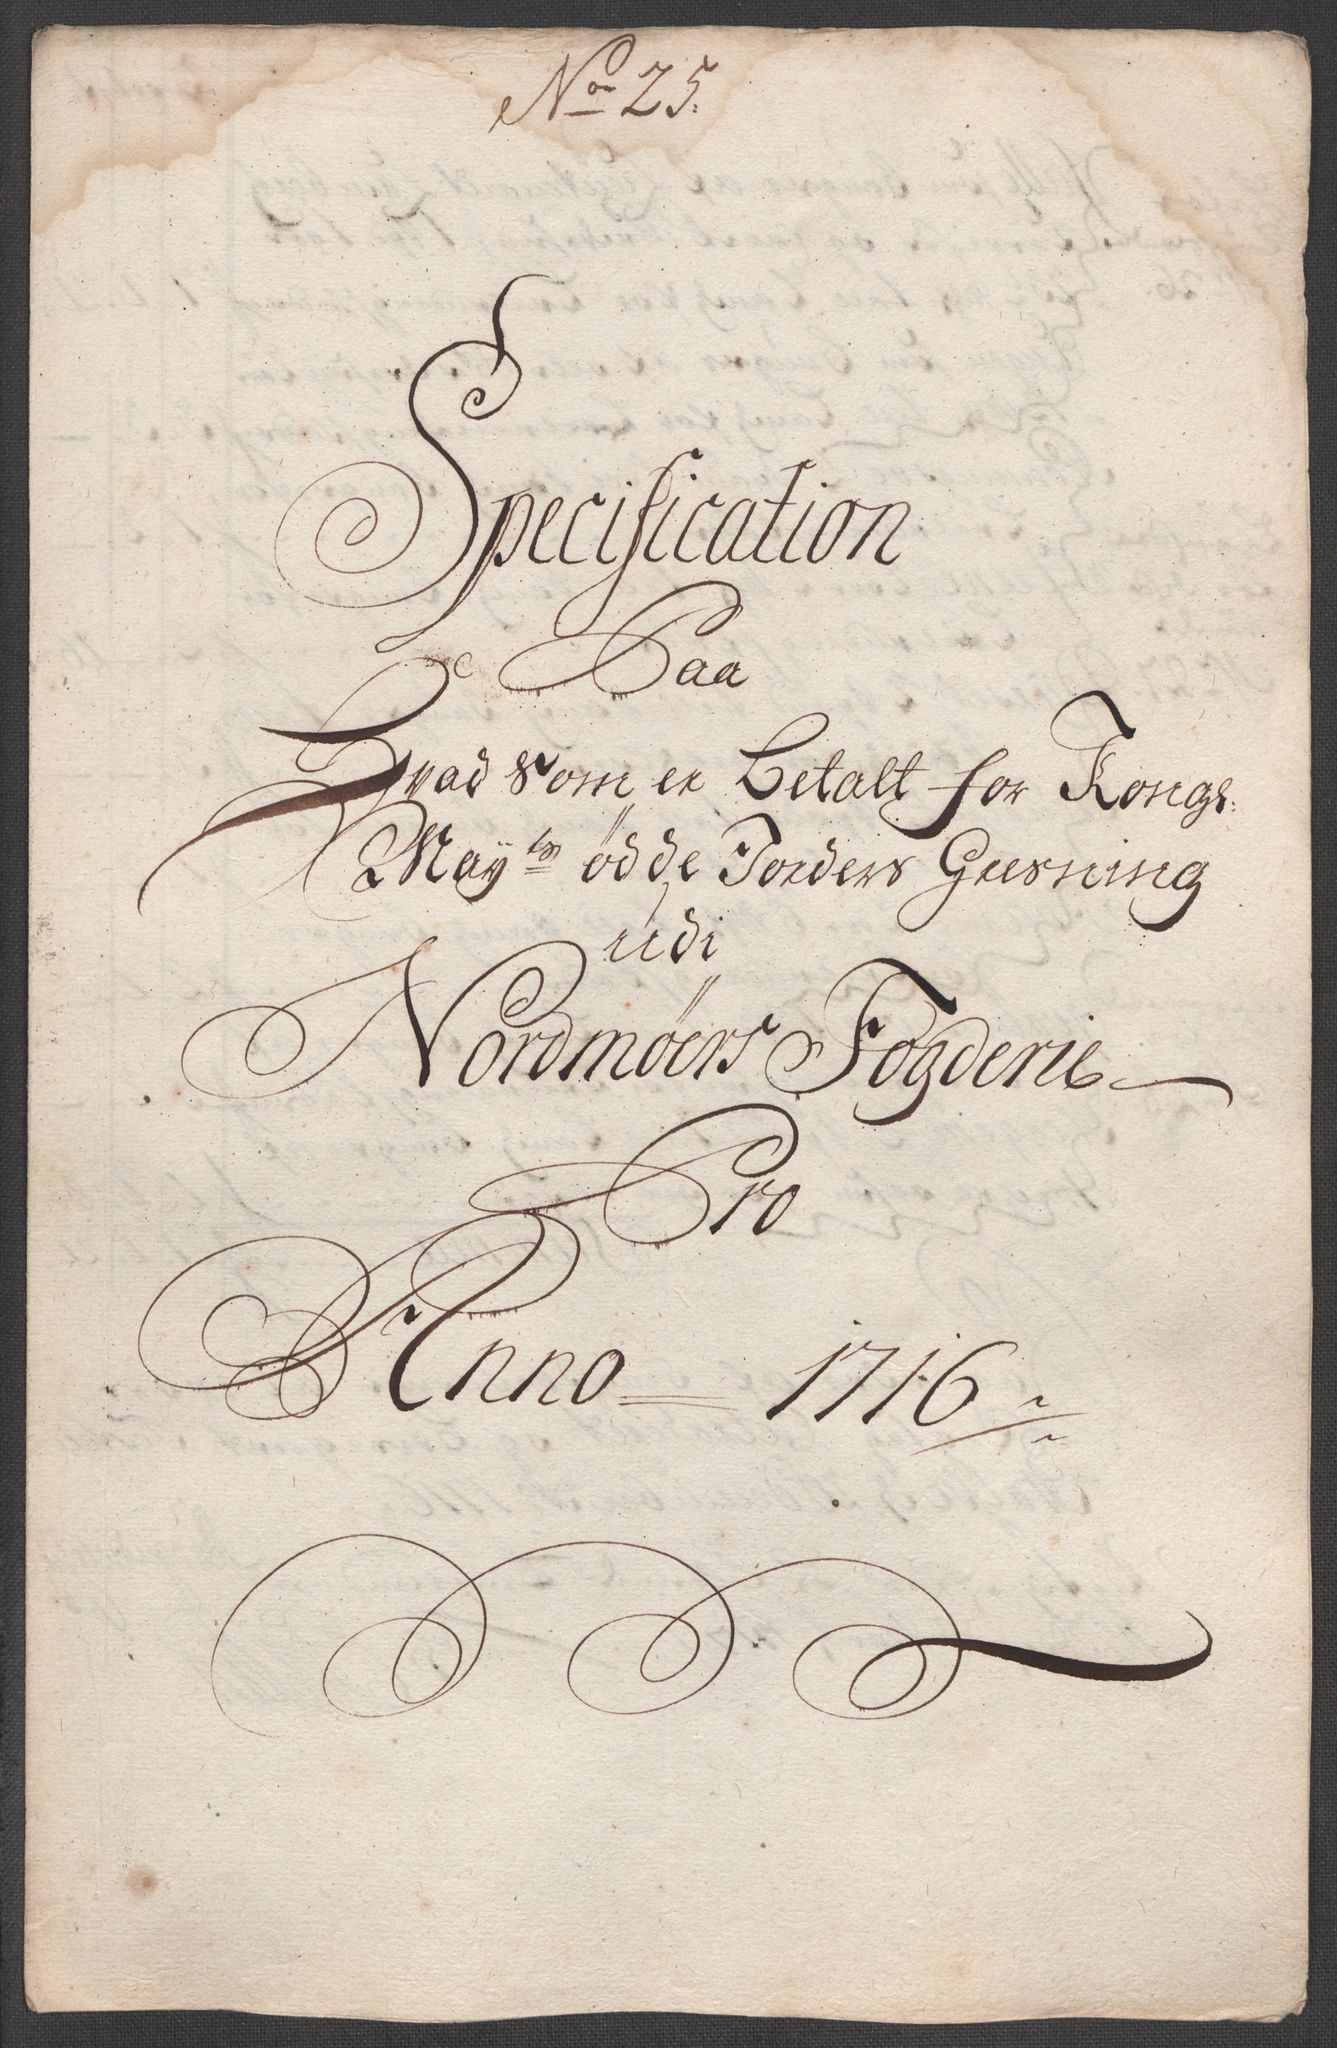 No 25.
Specification
Paa
Hvad som er betalt for Kongl:
Mayts ødde Jorders Gresning
udi
Nordmøers Fogderie
Pro
Anno 1716